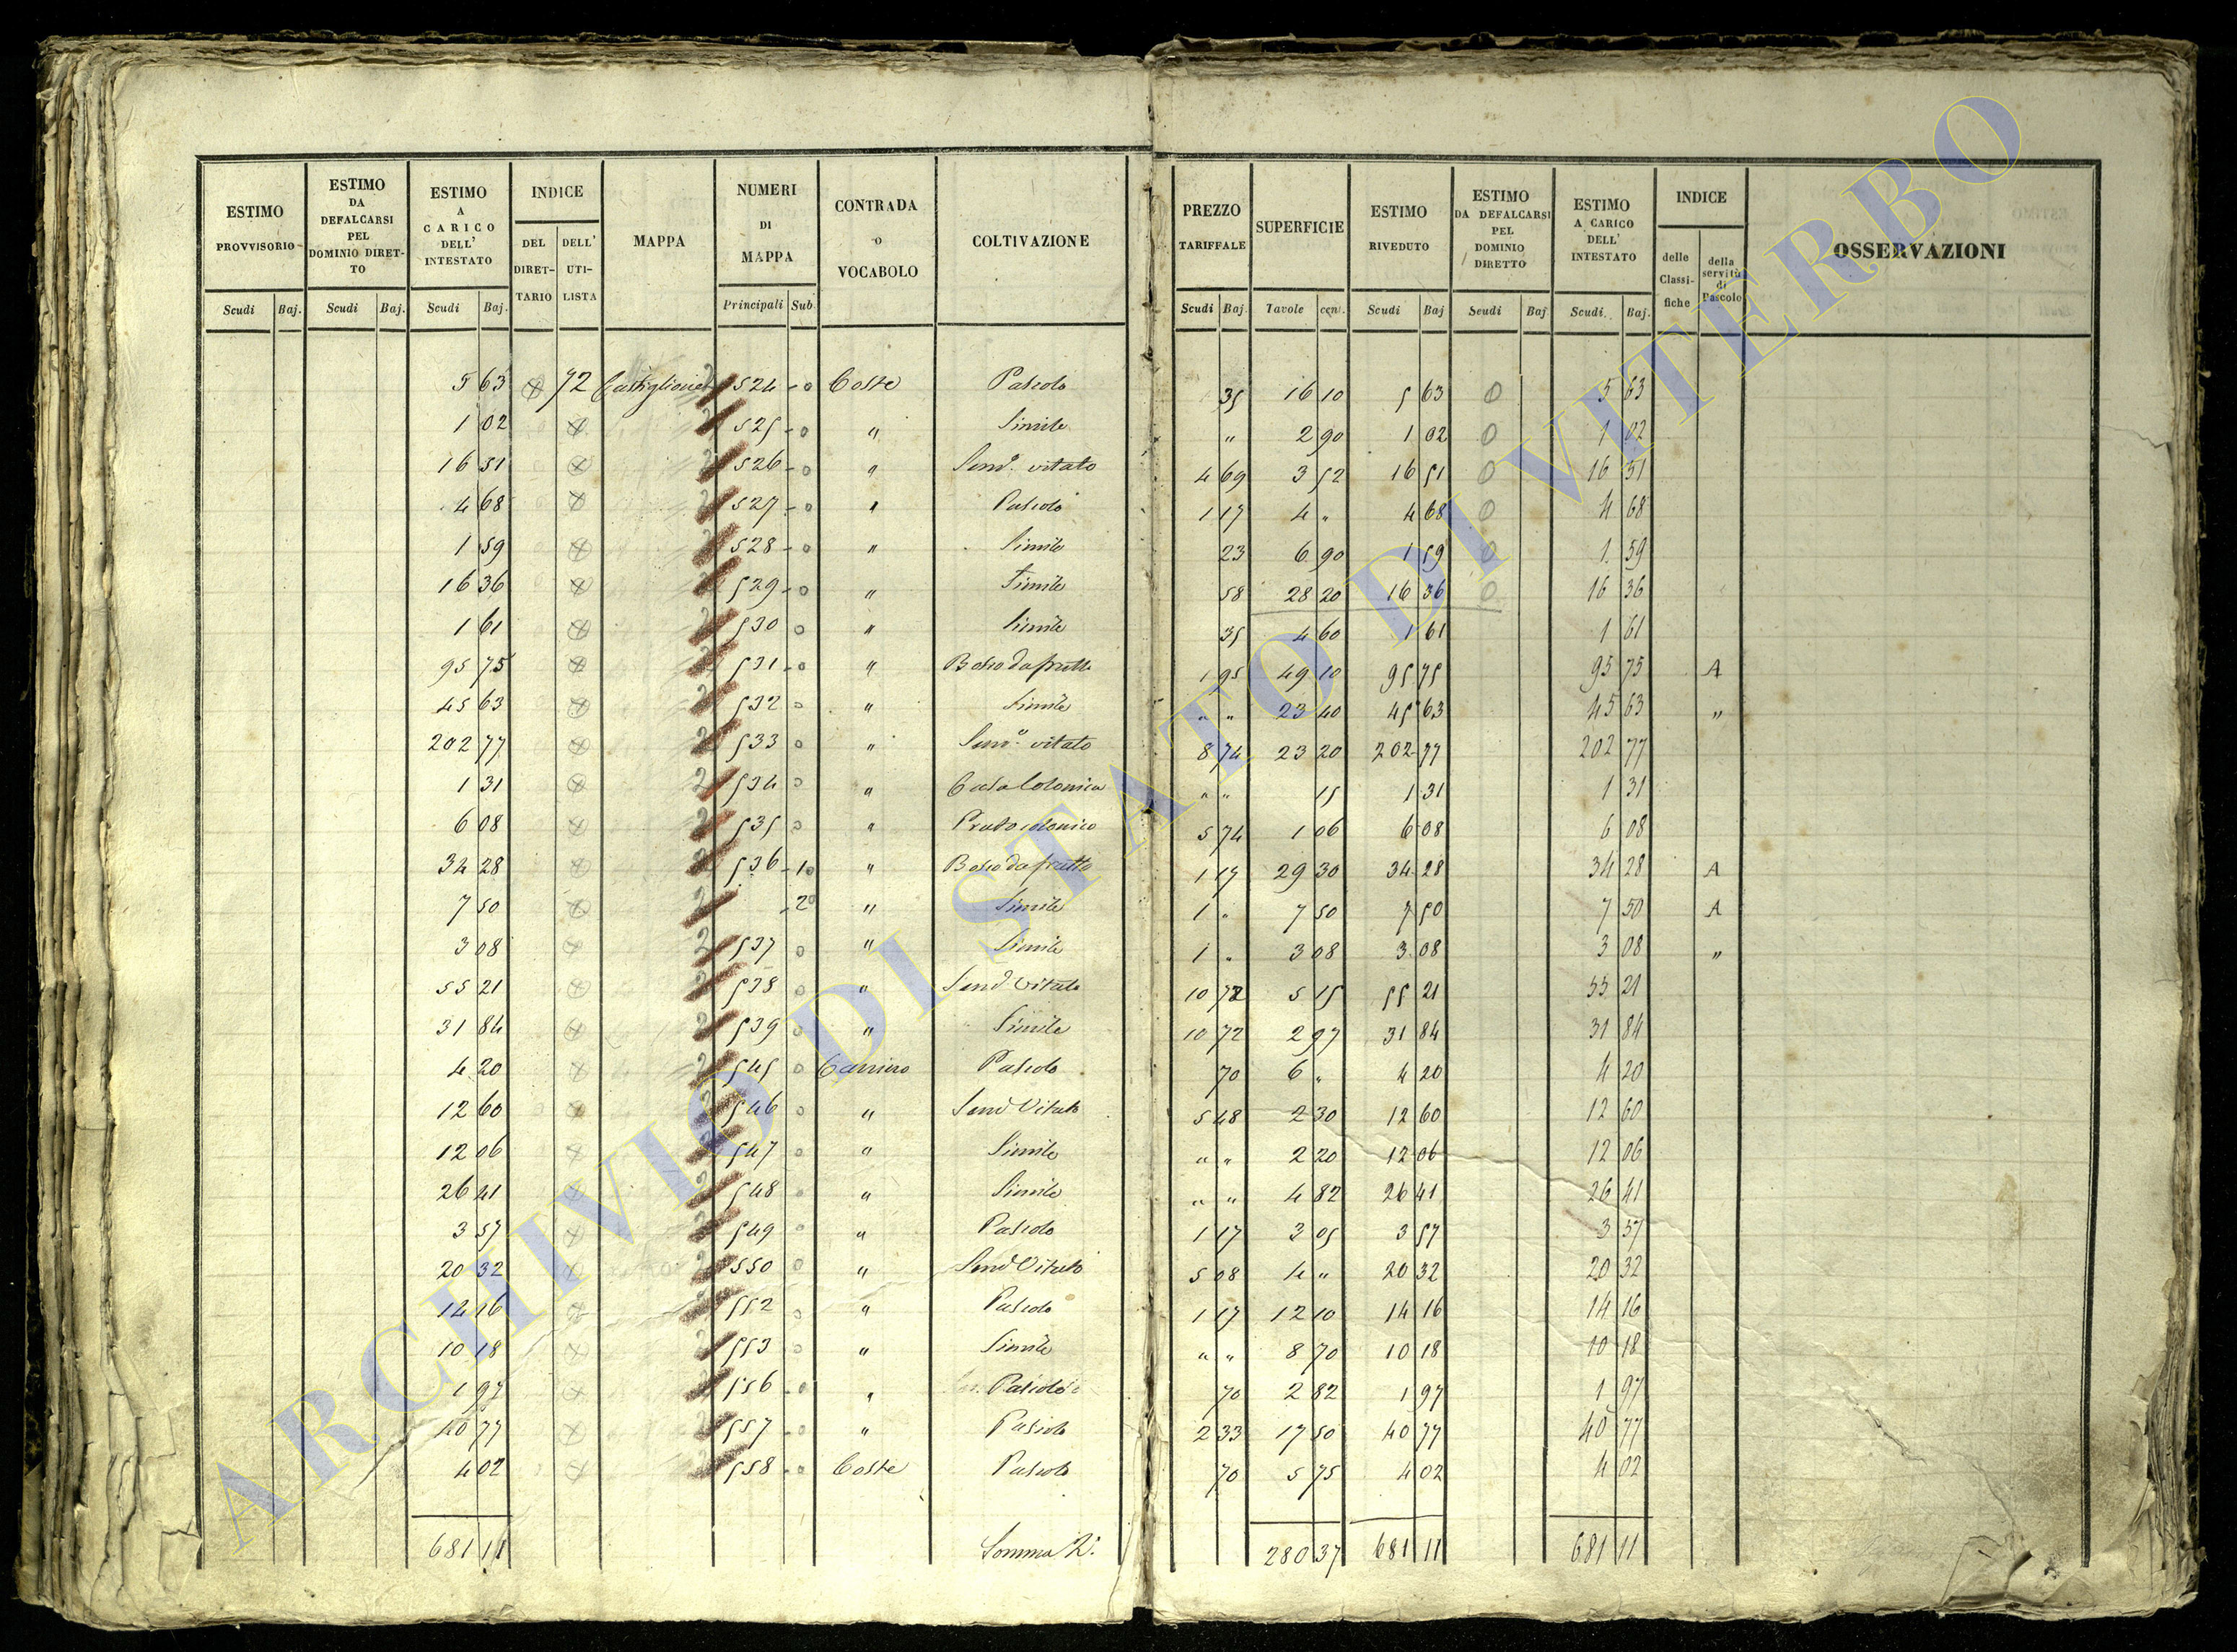 ESTIMO PROVVISORIO | ESTIMO DA DEFALCARSI PEL DOMINIO DIRETTO | ESTIMO A CARICO DELL' INTESTATO | INDICE DEL DIRETTARIO | DELL' UTILISTA | MAPPA | NUMERI DI MAPPA | CONTRADA O VOCABOLO | COLTIVAZIONE | PREZZO TARIFFALE | SUPERFICIE | ESTIMO RIVEDUTO | ESTIMO DA DEFALCARSI PEL DOMINIO DIRETTO | ESTIMO A CARICO DELL' INTESTATO | INDICE delle Classifiche | della servitù di Pascolo | OSSERVAZIONI
Scudi Baj. | Scudi Baj. | Scudi Baj. | Principali Sub. | Scudi Baj. | Tavole cent. | Scudi Baj | Scudi Baj | Scudi Baj.
5 63 72 Castiglione 2 524 - 0 Coste Pascolo 35 16 10 5 63 0 5 63
1 02 2 525 - 0 " Simile " 2 90 1 02 0 1 02
16 51 2 526 - 0 " Semo. vitato 4 69 3 52 16 51 0 16 51
4 68 2 527 - 0 " Pascolo 1 17 4 " 4 68 0 4 68
1 59 2 528 - 0 " Simile 23 6 90 1 59 0 1 59
16 36 2 529 - 0 " Simile 58 28 20 16 36 0 16 36
1 61 2 530 0 " Simile 35 4 60 1 61 1 61
95 75 2 531 - 0 " Bosco da frutto 1 95 49 10 95 75 95 75 A
45 63 2 532 0 " Simile " " 23 40 45 63 45 63 "
202 77 2 533 0 " Semo. vitato 8 74 23 20 202 77 202 77
1 31 2 534 0 " Casa Colonica " " 15 1 31 1 31
6 08 2 535 0 " Prato colonico 5 74 1 06 6 08 6 08
34 28 2 536 - 1 0 " Bosco da frutto 1 17 29 30 34 28 34 28 A
7 50 2 - 2 0 " Simile 1 " 7 50 7 50 7 50 A
3 08 2 537 0 " Simile 1 " 3 08 3 08 3 08 "
55 21 2 538 0 " Semo Vitato 10 72 5 15 55 21 55 21
31 84 2 539 0 " Simile 10 72 2 97 31 84 31 84
4 20 2 545 0 Pascolo 70 6 " 4 20 4 20
12 60 2 546 0 " Semo Vitato 5 48 2 30 12 60 12 60
12 06 2 547 0 " Simile " " 2 20 12 06 12 06
26 41 2 548 0 " Simile " " 4 82 26 41 26 41
3 57 2 549 0 " Pascolo 1 17 3 05 3 57 3 57
20 32 2 550 0 " Semo Vitato 5 08 4 " 20 32 20 32
14 16 2 552 0 " Pascolo 1 17 12 10 14 16 14 16
10 18 2 553 0 " Simile " " 8 70 10 18 10 18
1 97 2 556 - 0 " Pascolo 70 2 82 1 97 1 97
40 77 2 557 - 0 " Pascolo 2 33 17 50 40 77 40 77
4 02 2 558 - 0 Coste Pascolo 70 5 75 4 02 4 02
681 11 Somma 280 37 681 11 681 11
ARCHIVIO DI STATO DI VITERBO